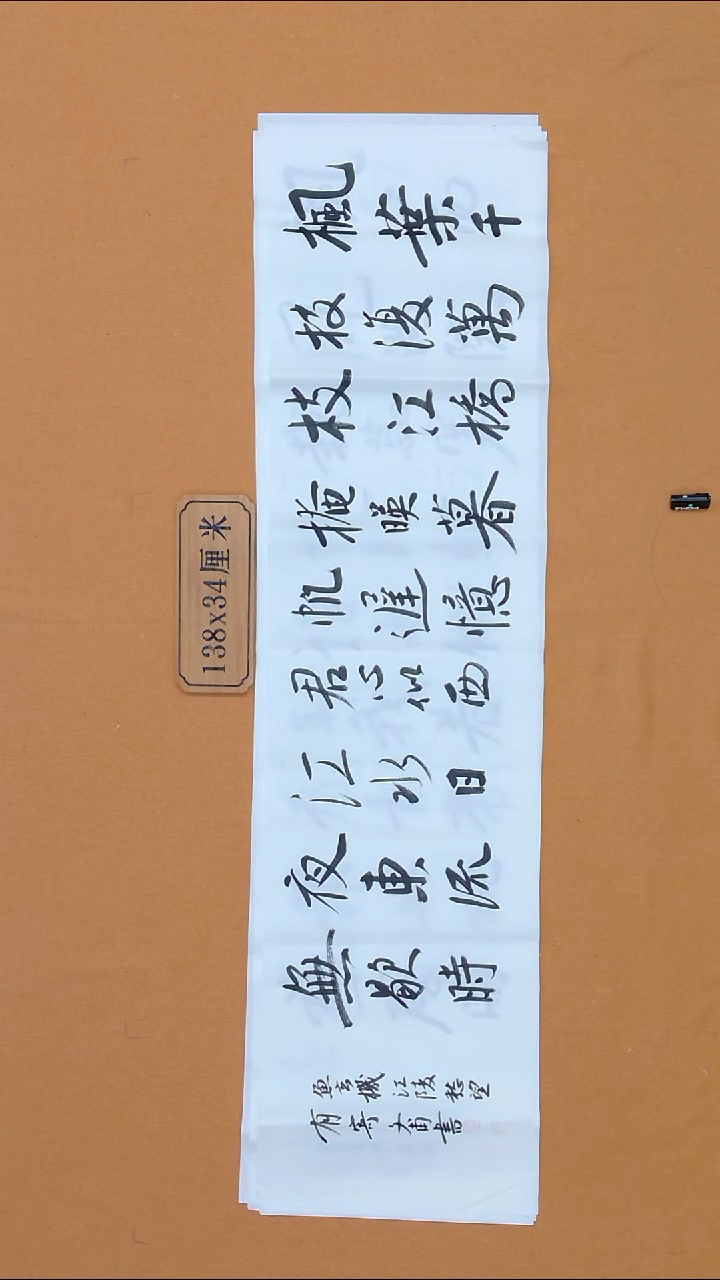 楓葉千
枝復萬
枝江橋
掩映暮
帆遲憶
君心似西
江水日
夜東流
無歇時
魚玄機江陵愁望
有寄書
138x34厘米